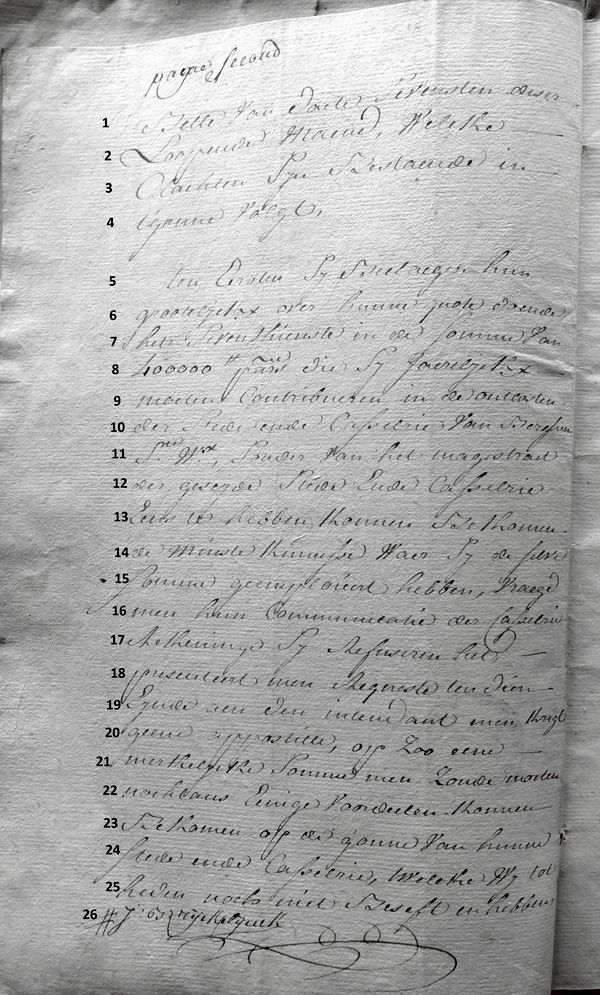 pagie second
1 Bette Van daete Sevensten deser
2 Loopende Maend, Welcke
3 Clachten Syn Bestaende in
4 t'gonne Volgt,
5 ten Eersten Sy Beclaegen hun
6 grootelyckx over hunne quote doende
7 het Seventhienste in de somme Van
8 400000 lt pars die Sy Jaerelyckx
9 moeten Contribueren in de oncosten
10 der Stede ende Casselrie Van Berghen
11 Ste Wx, Sonder Van het magistraet
12 der geseyde Stede Ende Casselrie
13 Eens te hebben Konnen Bekomen
14 de minste Kennisse Waer Sy de selve
15 Somme geemployeert hebben, Vraegd
16 men hun Communicatie der Casselrie
17 Rekeninge Sy Refuseren het,
18 presenteert men Requeste ten dien
19 Eynde aen den intendant men Krygt
20 geene appostille, op Zoo eene
21 merkelycke Somme men Zoude moeten
22 nochtans Eenige Voordeelen Konnen
23 Bekomen op de gonne Van hunne
24 stede ende Casselrie, Welcke Wy tot
25 heden noch niet Beseft en hebben
26 ryckelynck